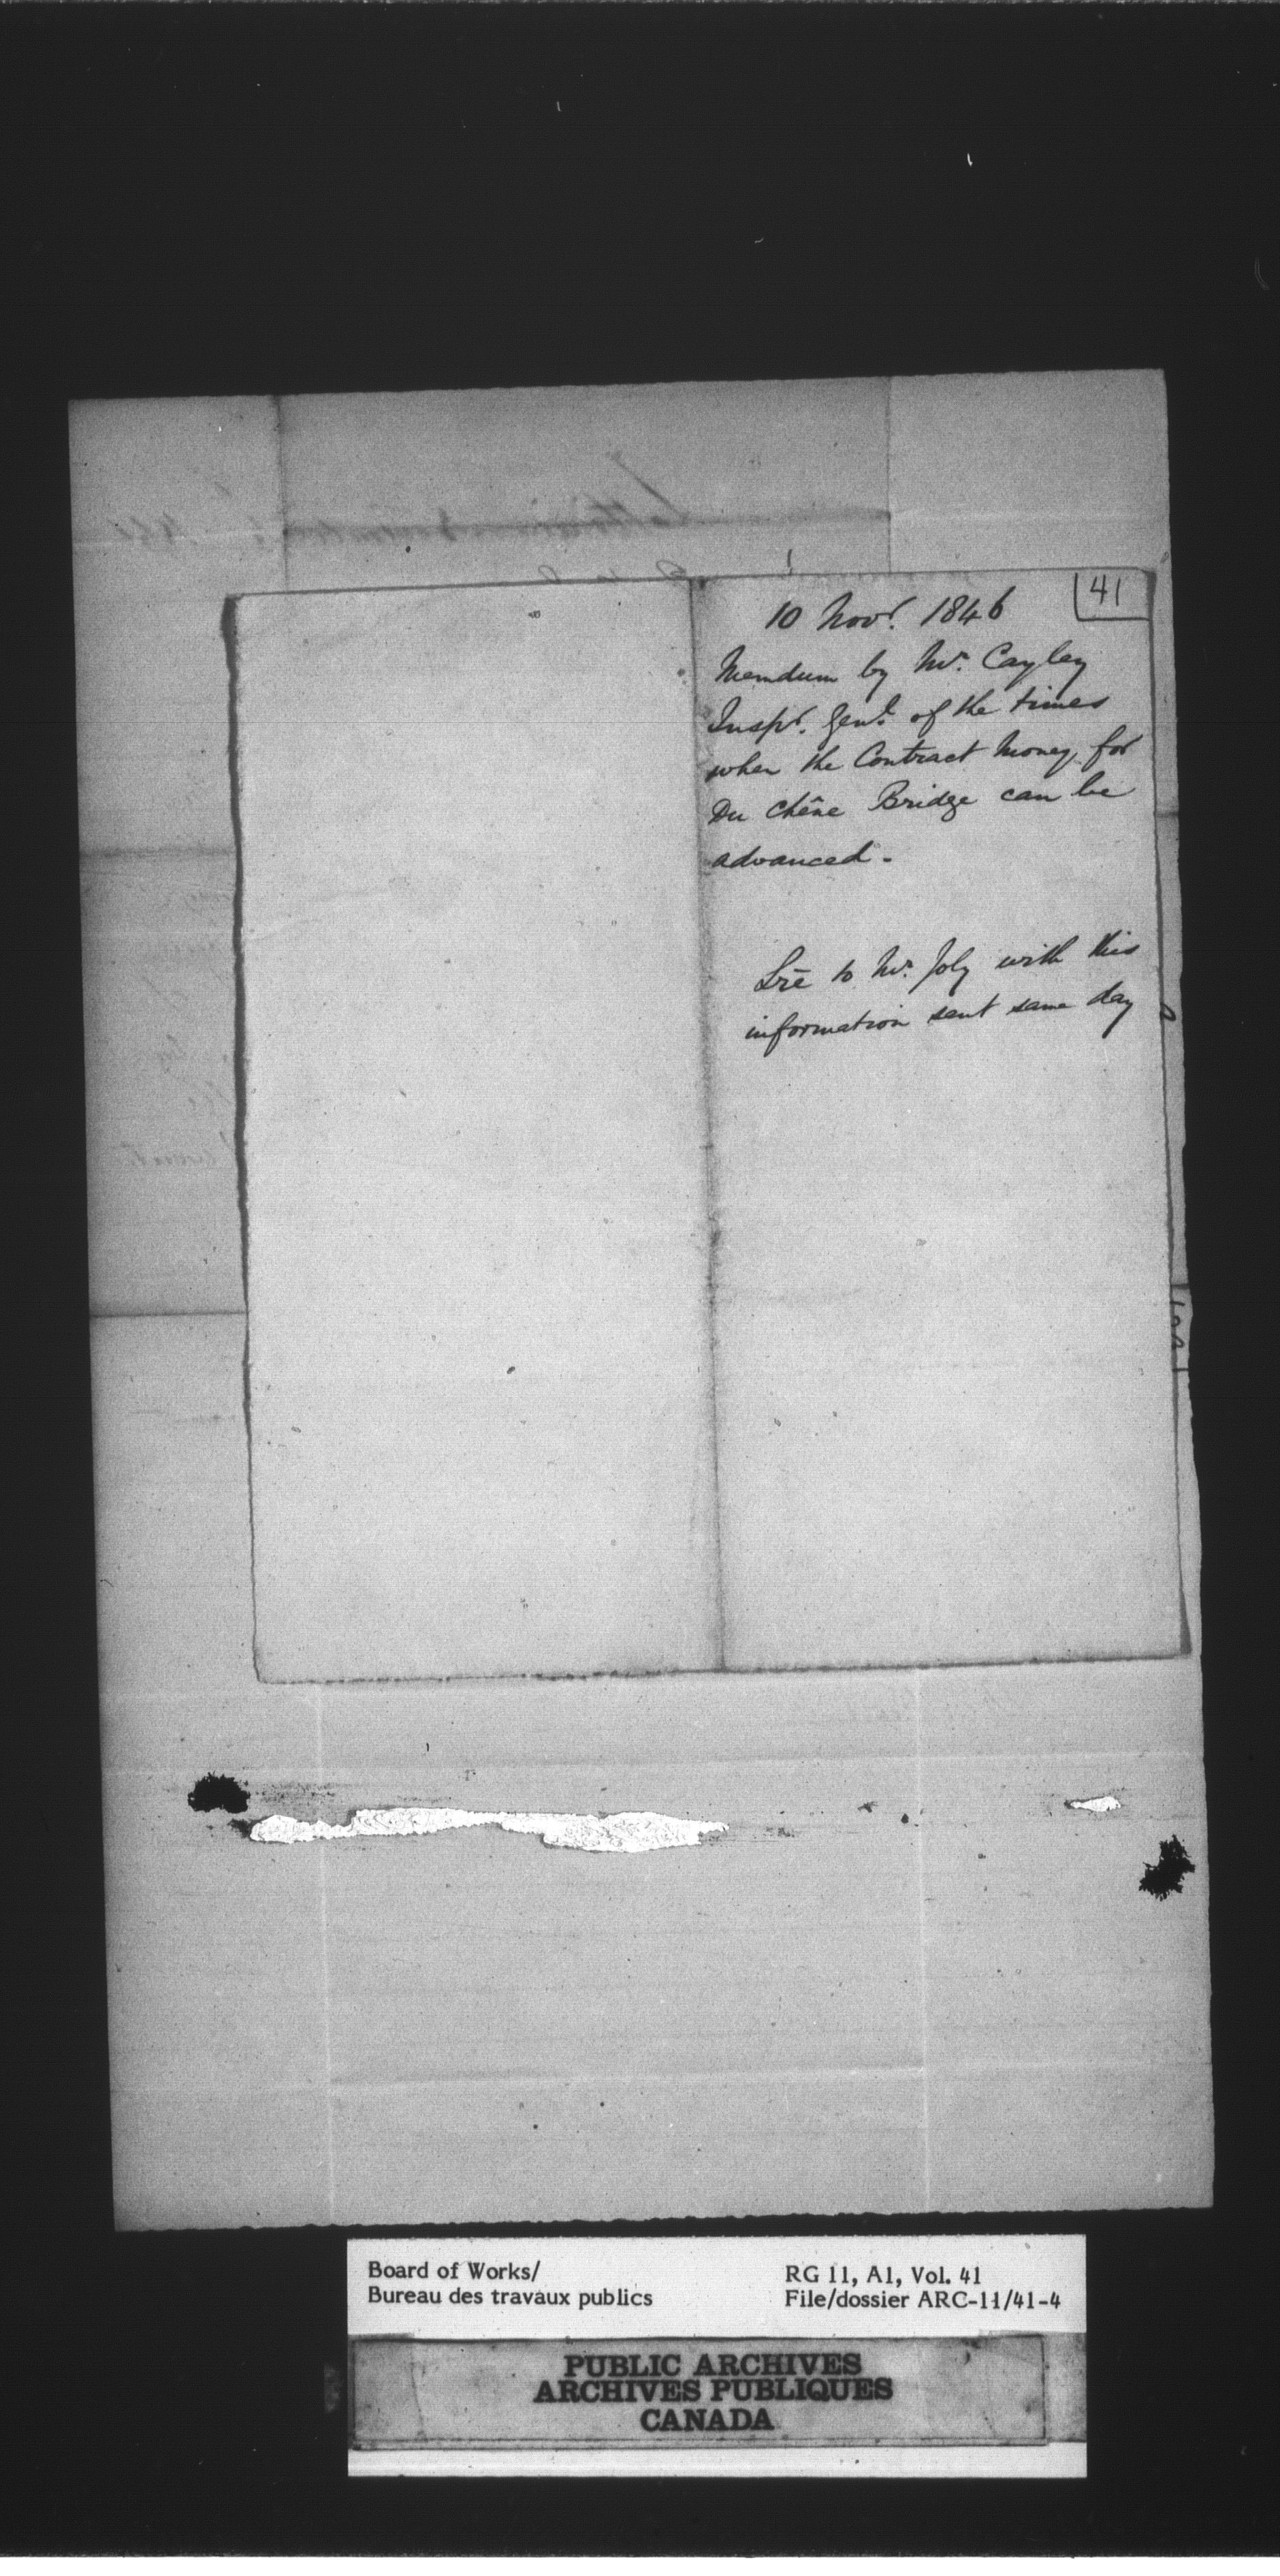 41
10 Novr. 1846
Memdum by Mr. Cayley
Inspr. Genl. of the times
when the Contract Money for
Du Chêne Bridge can be
advanced.
Lre to Mr. Joly with this
information sent same day
Board of Works/
Bureau des travaux publics
RG 11, A1, Vol. 41
File/dossier ARC-11/41-4
PUBLIC ARCHIVES
ARCHIVES PUBLIQUES
CANADA